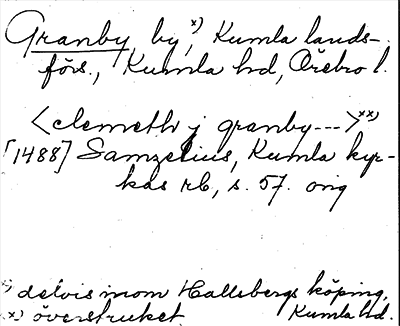 Granby, by,ˣ⁾ Kumla lands-
förs., Kumla hd, Örebro l.
<clemeth j granby--->ˣˣ⁾
[1488] Samzelius, Kumla kyr-
kas rb, s. 57. orig
ˣ⁾ delvis inom Hallsbergs köping,
ˣˣ⁾ överstruket Kumla hd.